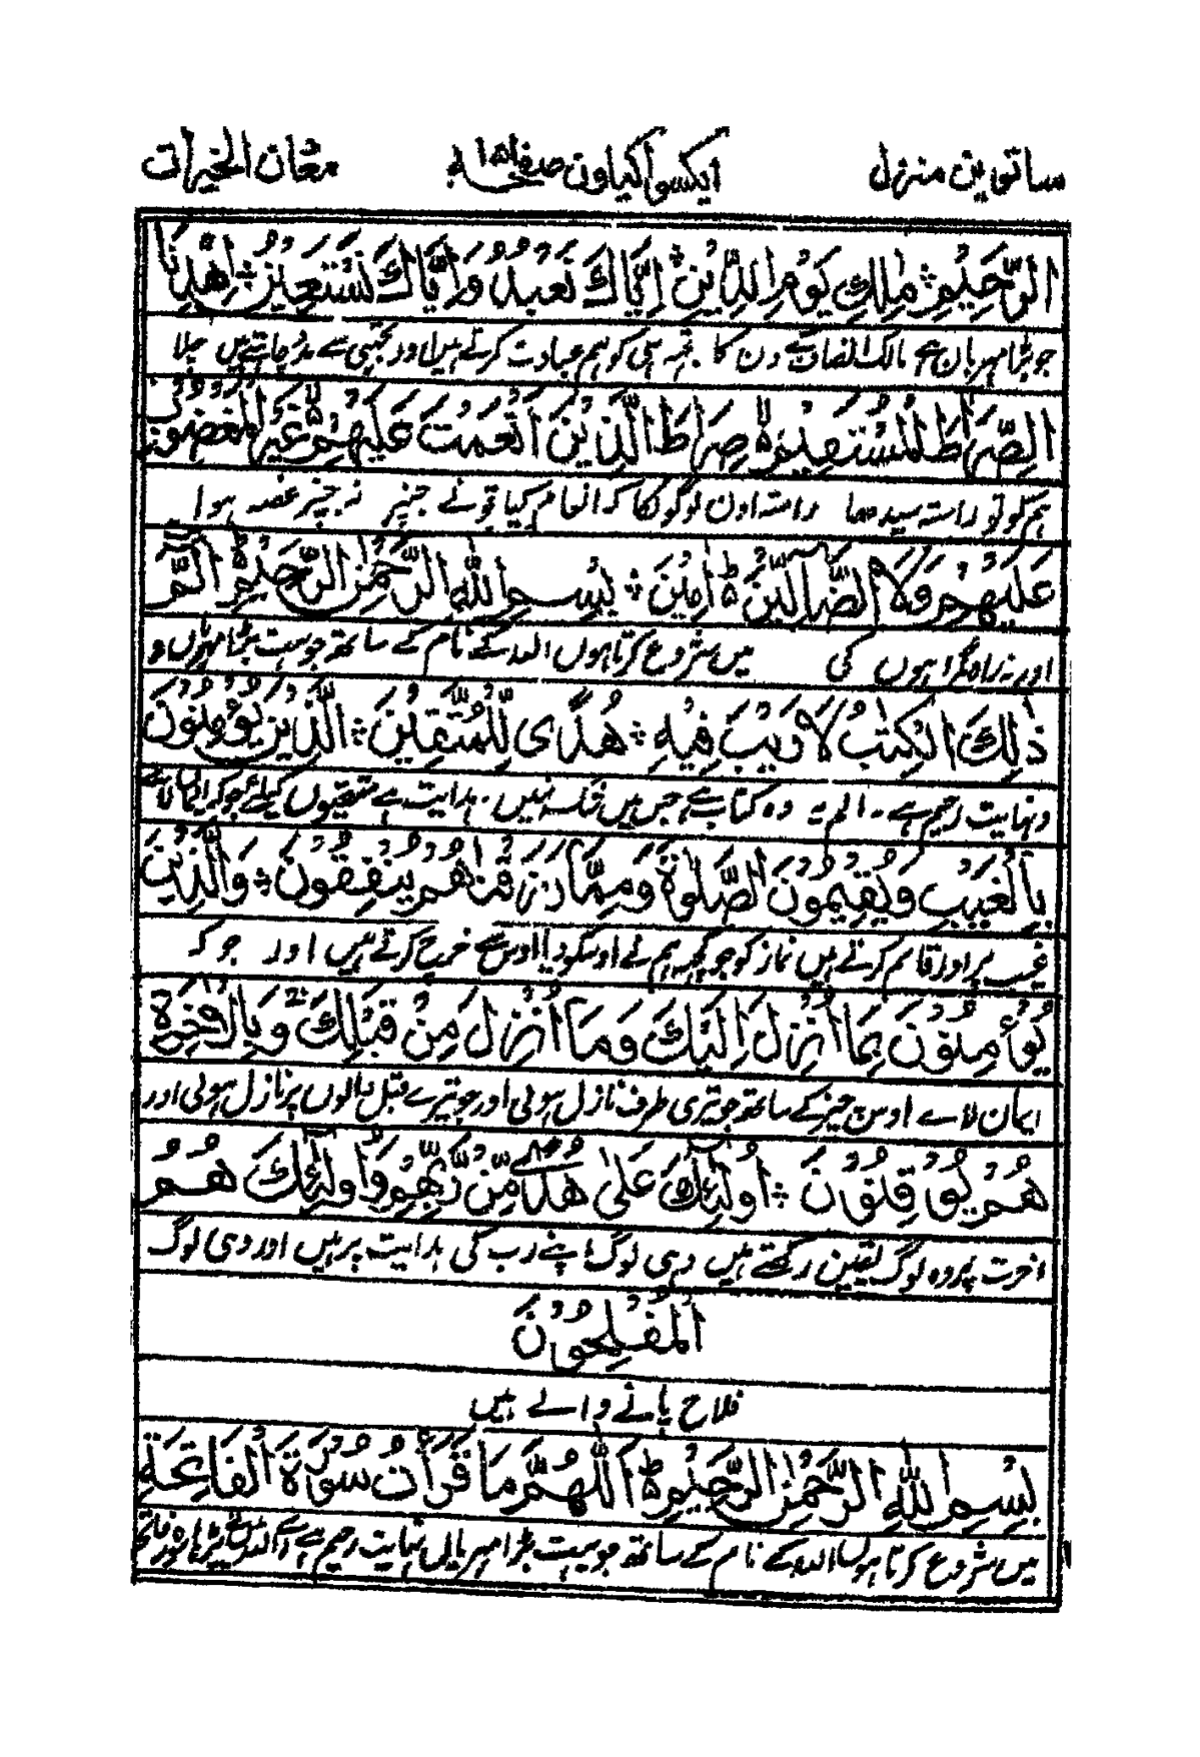 ساتویں منزل ایکسو اکیاون صفحہ ۱۵۱ مثمان الخیرات
الرَّحِيْمِ ۞ مٰلِكِ يَوْمِ الدِّيْنِ ۞ اِيَّاكَ نَعْبُدُ وَاِيَّاكَ نَسْتَعِيْنُ ۞ اِهْدِنَا
جو بڑا مہربان ہے مالک انصاف کے دن کا تجھہ ہی کو ہم عبادت کرتے ہیں اور تجھی سے مدد چاہتے ہیں چلا
الصِّرَاطَ الْمُسْتَقِيْمَ ۙ صِرَاطَ الَّذِيْنَ اَنْعَمْتَ عَلَيْهِمْ ۙ غَيْرِ الْمَغْضُوْبِ
ہم کو تو راستہ سیدھا راستہ اون لوگونکا کہ انعام کیا تو نے جنپر نہ جنپر غصہ ہوا
عَلَيْهِمْ وَلَا الضَّآلِّيْنَ ۞ اٰمِيْنَ ۞ بِسْمِ اللّٰهِ الرَّحْمٰنِ الرَّحِيْمِ ۞ الٓمّٓ
اور نہ راہ گمراہوں کی میں شروع کرتا ہوں اللہ کے نام کے ساتھ جو بہت بڑا مہربان و
ذٰلِكَ الْكِتٰبُ لَا رَيْبَ فِيْهِ ۞ هُدًى لِّلْمُتَّقِيْنَ ۞ الَّذِيْنَ يُؤْمِنُوْنَ
ونہایت رحیم ہے ۔ الم یہ وہ کتاب ہے جس میں شک نہیں ۔ ہدایت ہے متقیوں کیلئے جو کہ ایمان لاتے
بِالْغَيْبِ وَيُقِيْمُوْنَ الصَّلٰوةَ وَمِمَّا رَزَقْنٰهُمْ يُنْفِقُوْنَ ۞ وَالَّذِيْنَ
غیب پر اور قائم کرتے ہیں نماز کو جو کچھہ ہم نے اوسکو دیا اوس سے خرچ کرتے ہیں اور جو کہ
يُؤْمِنُوْنَ بِمَا اُنْزِلَ اِلَيْكَ وَمَا اُنْزِلَ مِنْ قَبْلِكَ ۚ وَبِالْاٰخِرَةِ
ایمان لاے اوس چیز کے ساتھ جو تیری طرف نازل ہوئی اور جو تیرے قبل والوں پر نازل ہوئی اور
هُمْ يُوْقِنُوْنَ ۞ اُولٰٓئِكَ عَلٰى هُدًى مِّنْ رَّبِّهِمْ وَاُولٰٓئِكَ هُمُ
آخرت پر وہ لوگ یقین رکھتے ہیں وہی لوگ اپنے رب کی ہدایت پر ہیں اور وہی لوگ
الْمُفْلِحُوْنَ
فلاح پانے والے ہیں
بِسْمِ اللّٰهِ الرَّحْمٰنِ الرَّحِيْمِ ۞ اَللّٰهُمَّ مَا قَرَأْتُ سُوْرَةَ الْفَاتِحَةِ
میں شروع کرتا ہوں اللہ کے نام کے ساتھ جو بہت بڑا مہربان نہایت رحیم ہے اے اللہ